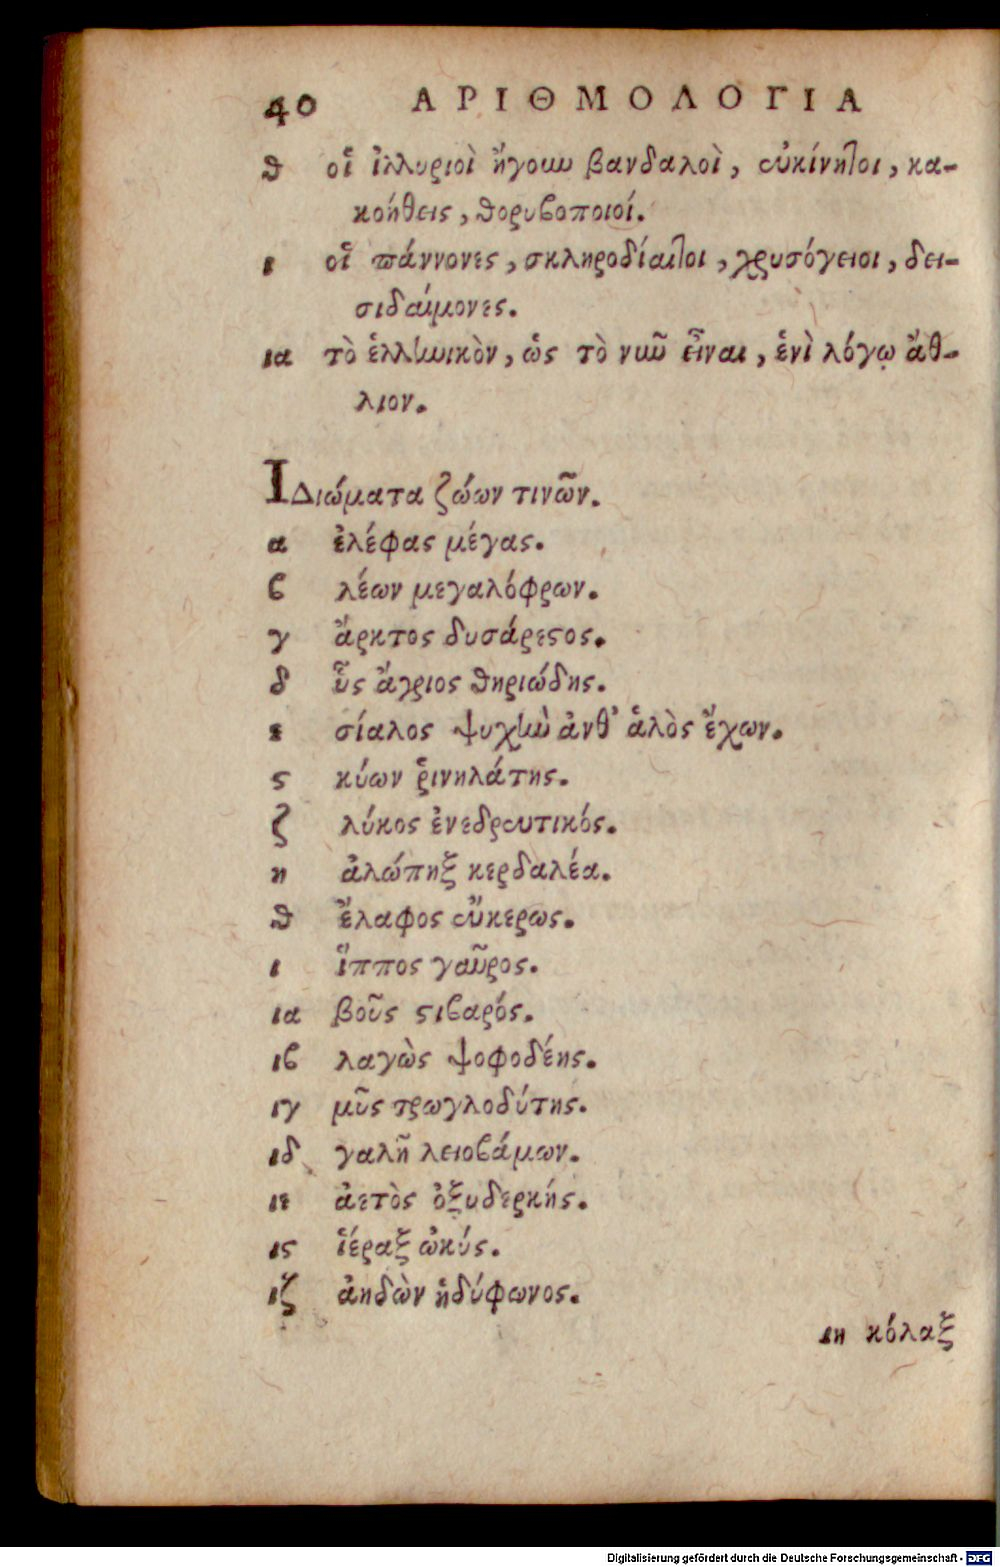 40 ΑΡΙΘΜΟΛΟΓΙΑ
θ οἱ ἰλλυριοὶ ἤγουν βανδαλοὶ, εὐκίνητοι, κα-
κοήθεις, θορυβοποιοί.
ι οἱ πάννονες, σκληροδίαιτοι, χρυσόγειοι, δει-
σιδαίμονες.
ια τὸ ἑλληνικὸν, ὡς τὸ νῦν εἶναι, ἑνὶ λόγῳ ἄθ-
λιον.
Ιδιώματα ζώων τινῶν.
α ἐλέφας μέγας.
β λέων μεγαλόφρων.
γ ἄρκτος δυσάρεστος.
δ ὗς ἄγριος θηριώδης.
ε σίαλος ψυχὴν ἀνθ' ἁλὸς ἔχων.
ϛ κύων ῥινηλάτης.
ζ λύκος ἐνεδρευτικός.
η ἀλώπηξ κερδαλέα.
θ ἔλαφος εὔκερως.
ι ἵππος γαῦρος.
ια βοῦς στιβαρός.
ιβ λαγὼς ψοφοδέης.
ιγ μῦς τρωγλοδύτης.
ιδ γαλῆ λειοβάμων.
ιε ἀετὸς ὀξυδερκής.
ιϛ ἱέραξ ὠκύς.
ιζ ἀηδὼν ἡδύφωνος.
ιη κόλαξ
Digitalisierung gefördert durch die Deutsche Forschungsgemeinschaft - DFG